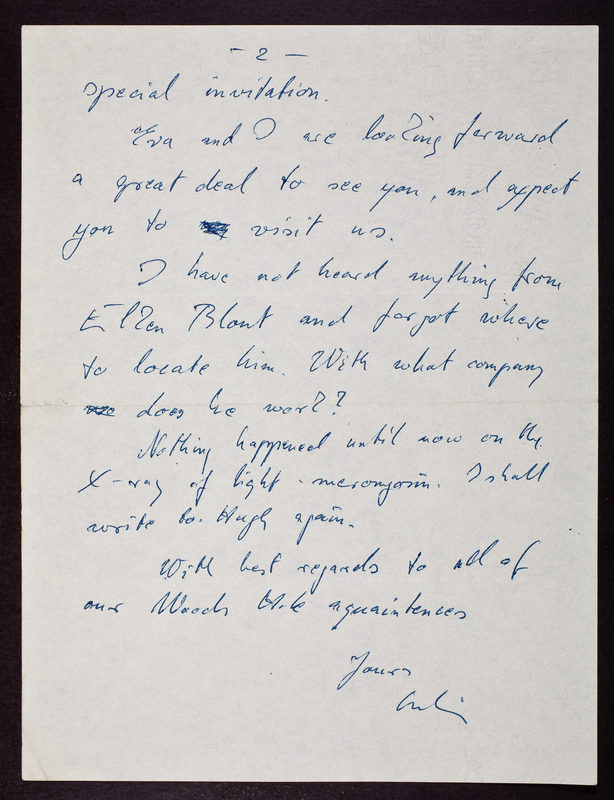 - 2 -
special invitation.
Eva and I are looking forward
a great deal to see you, and expect
you to visit us.
I have not heard anything from
Elken Blout and forgot where
to locate him. With what company
does he work?
Nothing happened until now on the
X-ray of light - meromyosin. I shall
write to Hugh again.
With best regards to all of
our Woods Hole aquaintences
Yours